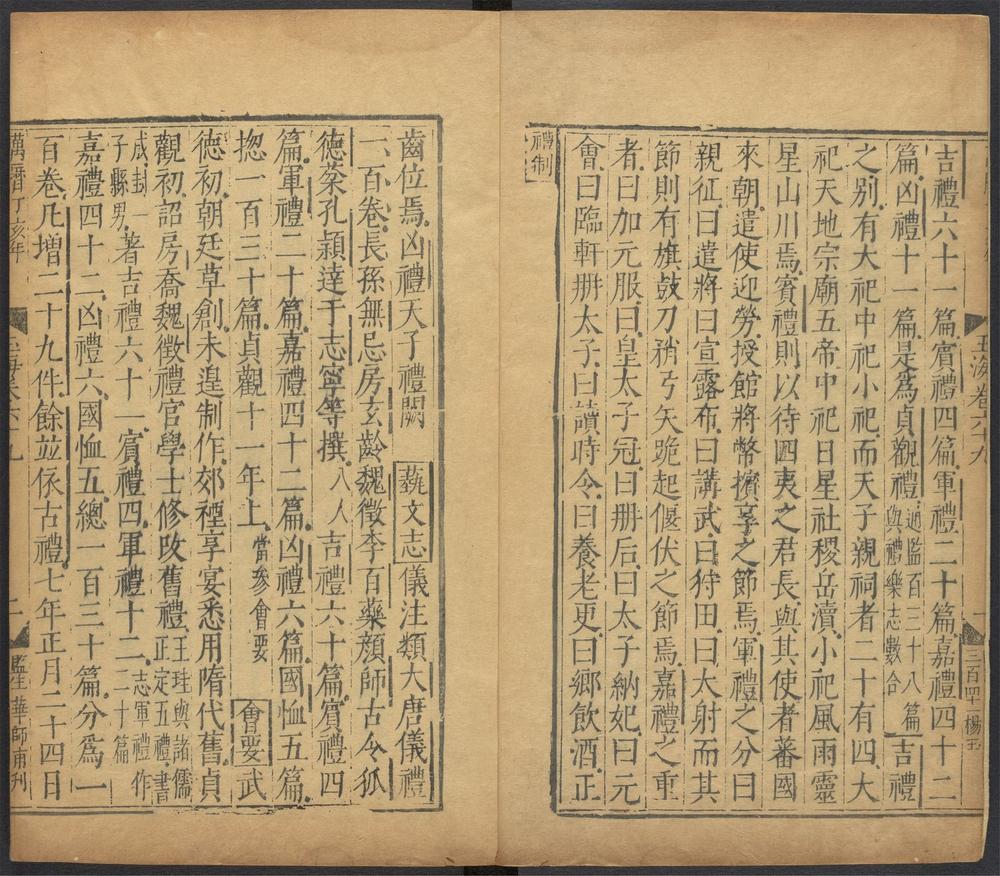 玉海卷六十九
三百四 楊玉
吉禮六十一篇賓禮四篇軍禮二十篇嘉禮四十二
篇凶禮十一篇是爲貞觀禮通鑑百三十八篇與禮樂志數合吉禮
之別有大祀中祀小祀而天子親祠者二十有四大
祀天地宗廟五帝中祀日星社稷岳瀆小祀風雨靈
星山川焉賓禮則以待四夷之君長與其使者蕃國
來朝遣使迎勞授館將幣擯享之節焉軍禮之分曰
親征曰遣將曰宣露布曰講武曰狩田曰大射而其
節則有旗鼓刀矟弓矢跪起偃伏之節焉嘉禮之重
者曰加元服曰皇太子冠曰冊后曰太子納妃曰元
會曰臨軒冊太子曰讀時令曰養老更曰鄉飲酒正
禮制
齒位焉凶禮天子禮闕 藝文志儀注類大唐儀禮
一百卷長孫無忌房玄齡魏徵李百藥顏師古令狐
德棻孔穎達于志寧等撰八人吉禮六十篇賓禮四
篇軍禮二十篇嘉禮四十二篇凶禮六篇國恤五篇
揔一百三十篇貞觀十一年上當參會要 會要武
德初朝廷草創未遑制作郊禋享宴悉用隋代舊貞
觀初詔房喬魏徵禮官學士修改舊禮王珪與諸儒正定五禮書
成封一子縣男著吉禮六十一賓禮四軍禮十二志軍禮作二十篇
嘉禮四十二凶禮六國恤五總一百三十篇分爲一
百卷凡增二十九件餘並依古禮七年正月二十四日
萬曆丁亥年
二
監生華師甫刊